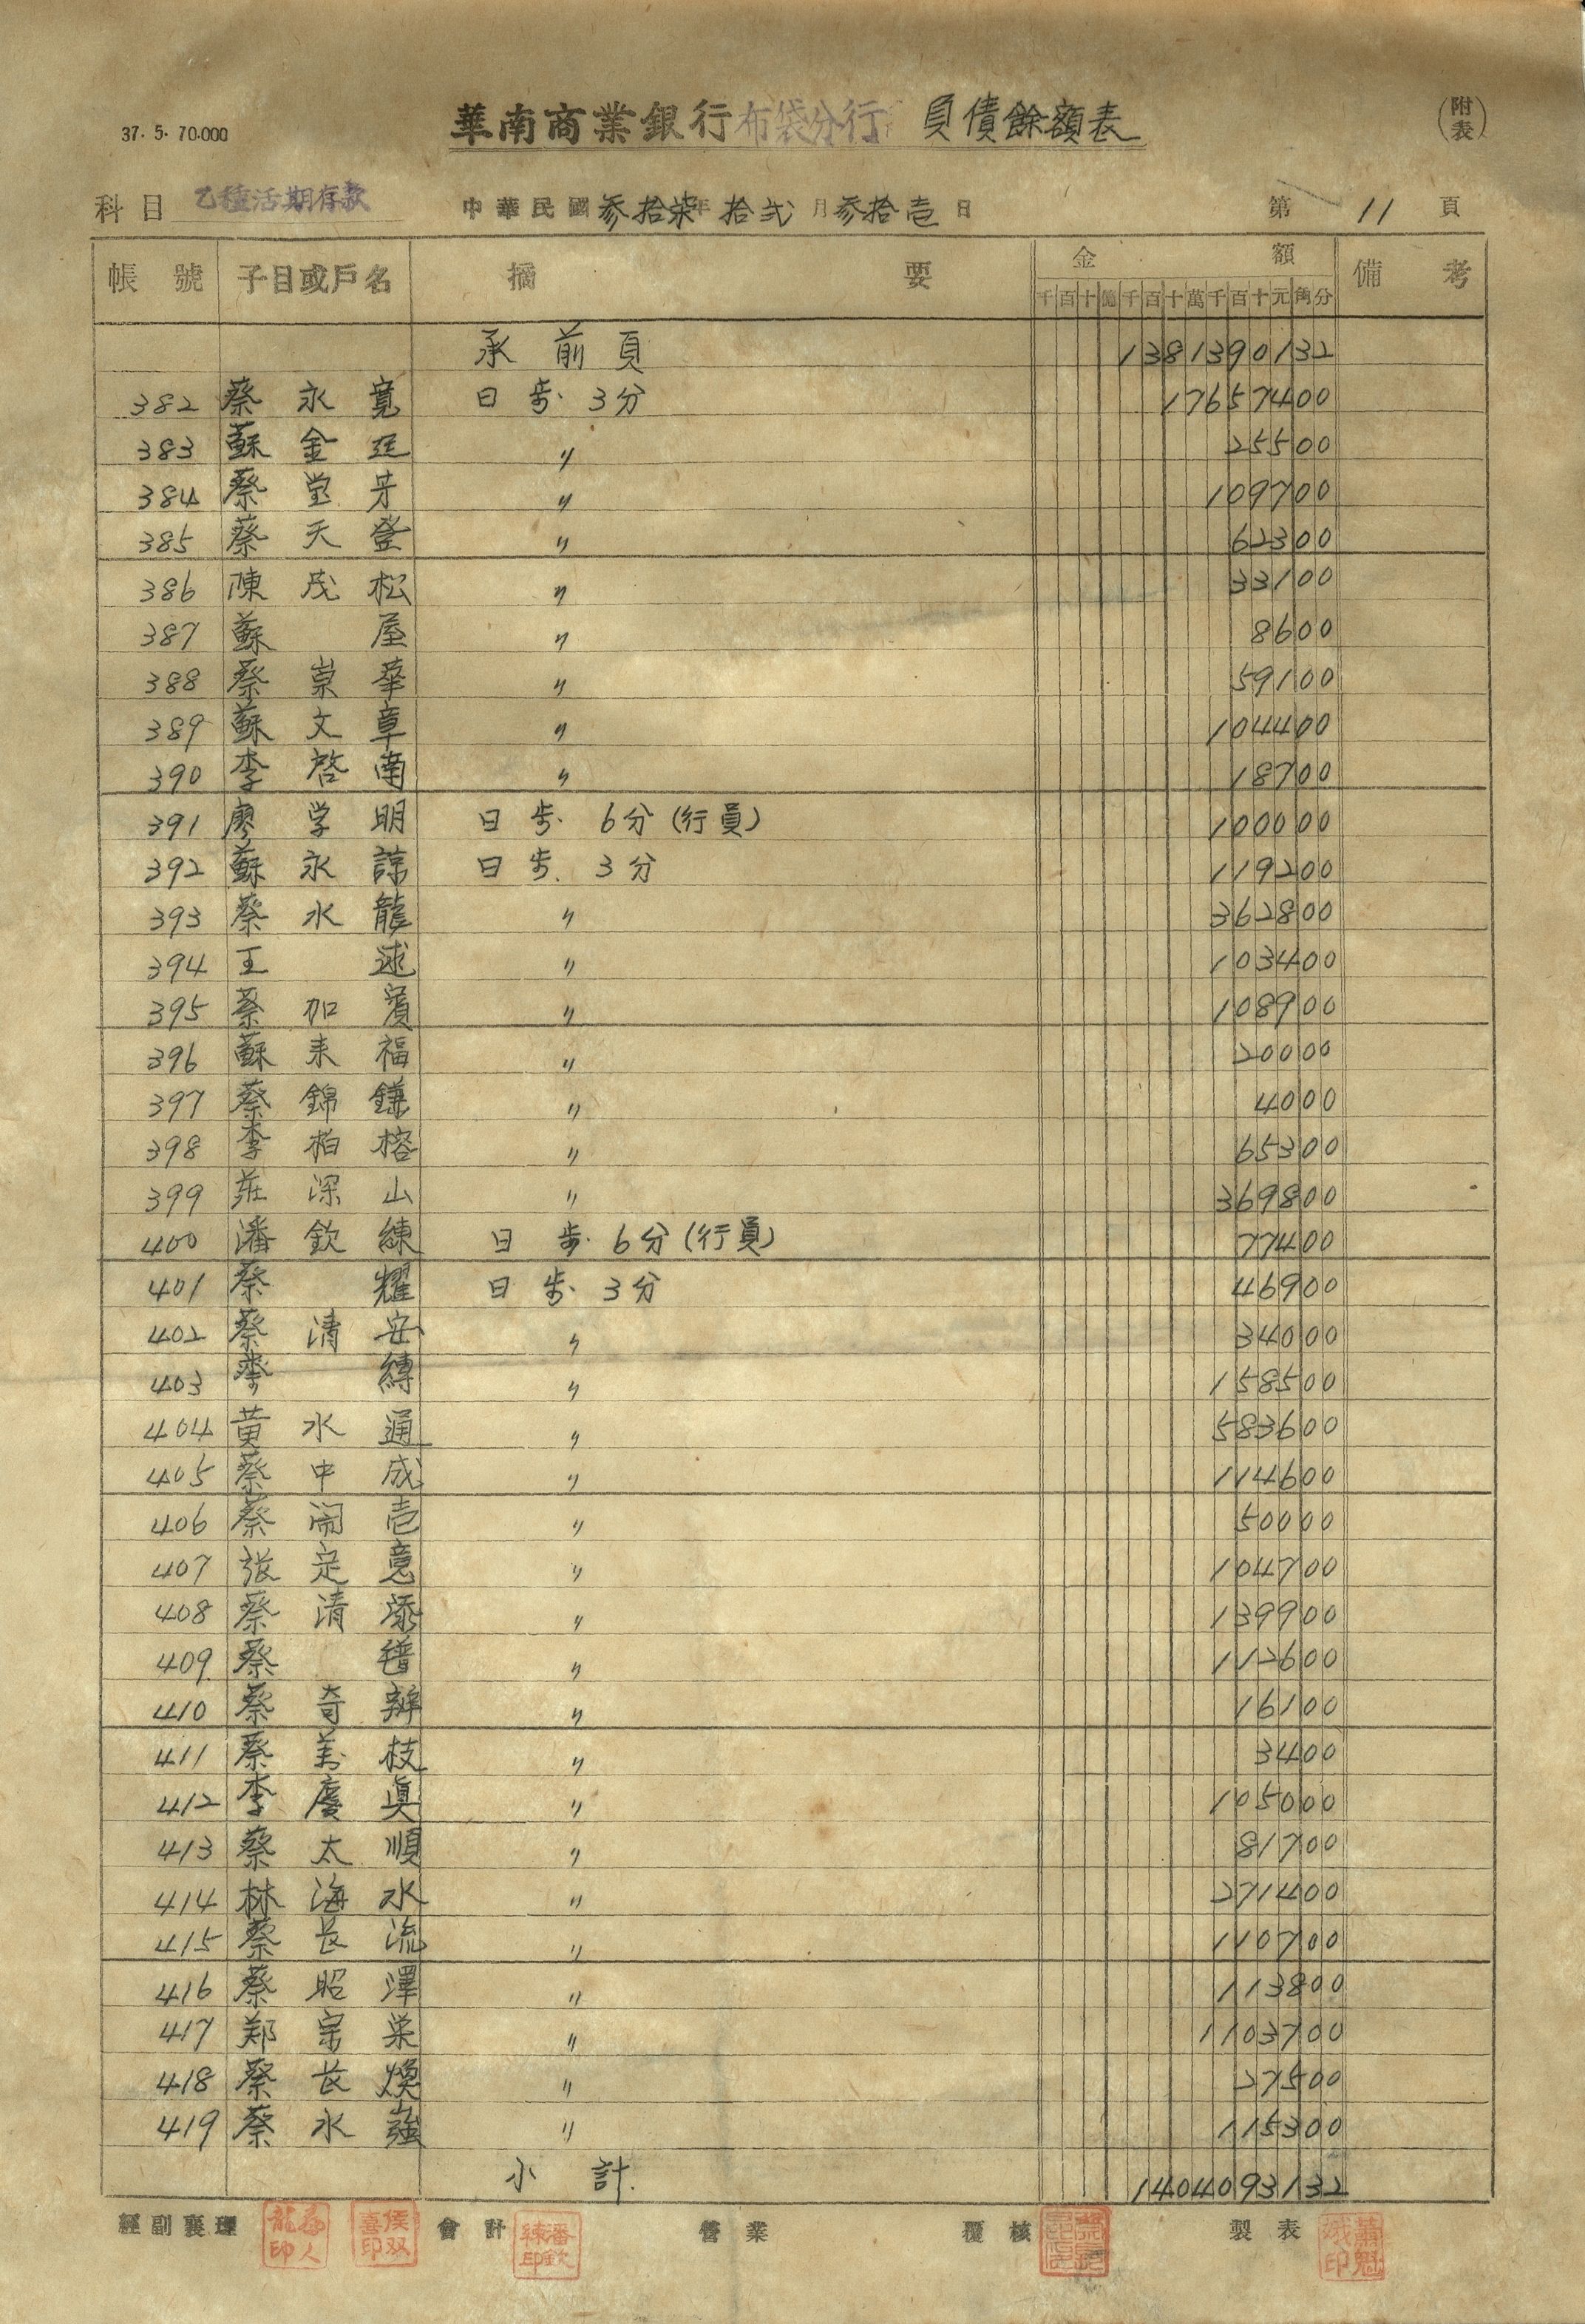 37. 5. 70.000
華南商業銀行布袋分行 負債餘額表
(附表)
科目 乙種活期存款 中華民國參拾柒年拾弍月參拾壱日 第11頁
帳號 子目或戶名 摘要 金額 備考
千百十億千百十萬千百十元角分
承前頁 1381390132
382 蔡永寬 日步. 3分 17657400
383 蘇金廷 〃 25500
384 蔡堂芽 〃 109700
385 蔡天登 〃 62300
386 陳茂松 〃 33100
387 蘇屋 〃 8600
388 蔡崇華 〃 59100
389 蘇文章 〃 104400
390 李啓南 〃 18700
391 廖学明 日步. 6分(行員) 100000
392 蘇永諒 日步. 3分 119200
393 蔡水龍 〃 362800
394 王逑 〃 103400
395 蔡加賓 〃 108900
396 蘇来福 〃 20000
397 蔡錦鎌 〃 4000
398 李柏榕 〃 65300
399 莊深山 〃 369800
400 潘欽練 日步. 6分(行員) 77400
401 蔡耀 日步. 3分 46900
402 蔡清安 〃 34000
403 李縛 〃 158500
404 黃水通 〃 583600
405 蔡中成 〃 114600
406 蔡闹壱 〃 50000
407 張定意 〃 104700
408 蔡清添 〃 139900
409 蔡 〃 112600
410 蔡奇辦 〃 16100
411 蔡萬枝 〃 3400
412 李慶真 〃 105000
413 蔡太順 〃 81700
414 林海水 〃 271400
415 蔡長流 〃 110700
416 蔡昭澤 〃 113800
417 郑宗栄 〃 1103700
418 蔡長煥 〃 27500
419 蔡水強 〃 115300
小計. 1404093132
經副襄理 會計 營業 覆核 製表
侯双喜印
潘欽練印